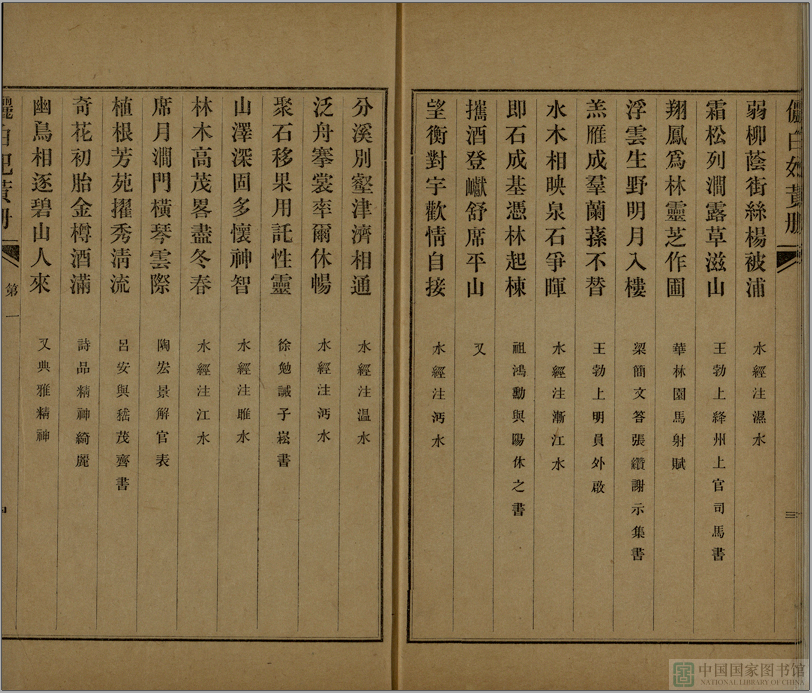 弱柳蔭街絲楊被浦 水經注濕水
霜松列澗露草滋山 王勃上絳州上官司馬書
翔鳳爲林靈芝作圃 華林園馬射賦
浮雲生野明月入樓 梁簡文答張纘謝示集書
羔雁成羣蘭蓀不替 王勃上明員外啟
水木相映泉石爭暉 水經注漸江水
即石成基憑林起棟 祖鴻勳與陽休之書
攜酒登巘舒席平山 又
望衡對宇歡情自接 水經注沔水
分溪別壑津濟相通 水經注溫水
泛舟搴裳率爾休暢 水經注沔水
聚石移果用託性靈 徐勉誡子崧書
山澤深固多懷神智 水經注睢水
林木高茂畧盡冬春 水經注江水
席月澗門橫琴雲際 陶宏景解官表
植根芳苑擢秀清流 呂安與嵇茂齊書
奇花初胎金樽酒滿 詩品精神綺麗
幽鳥相逐碧山人來 又典雅精神
第一
三
中国国家图书馆
NATIONAL LIBRARY OF CHINA